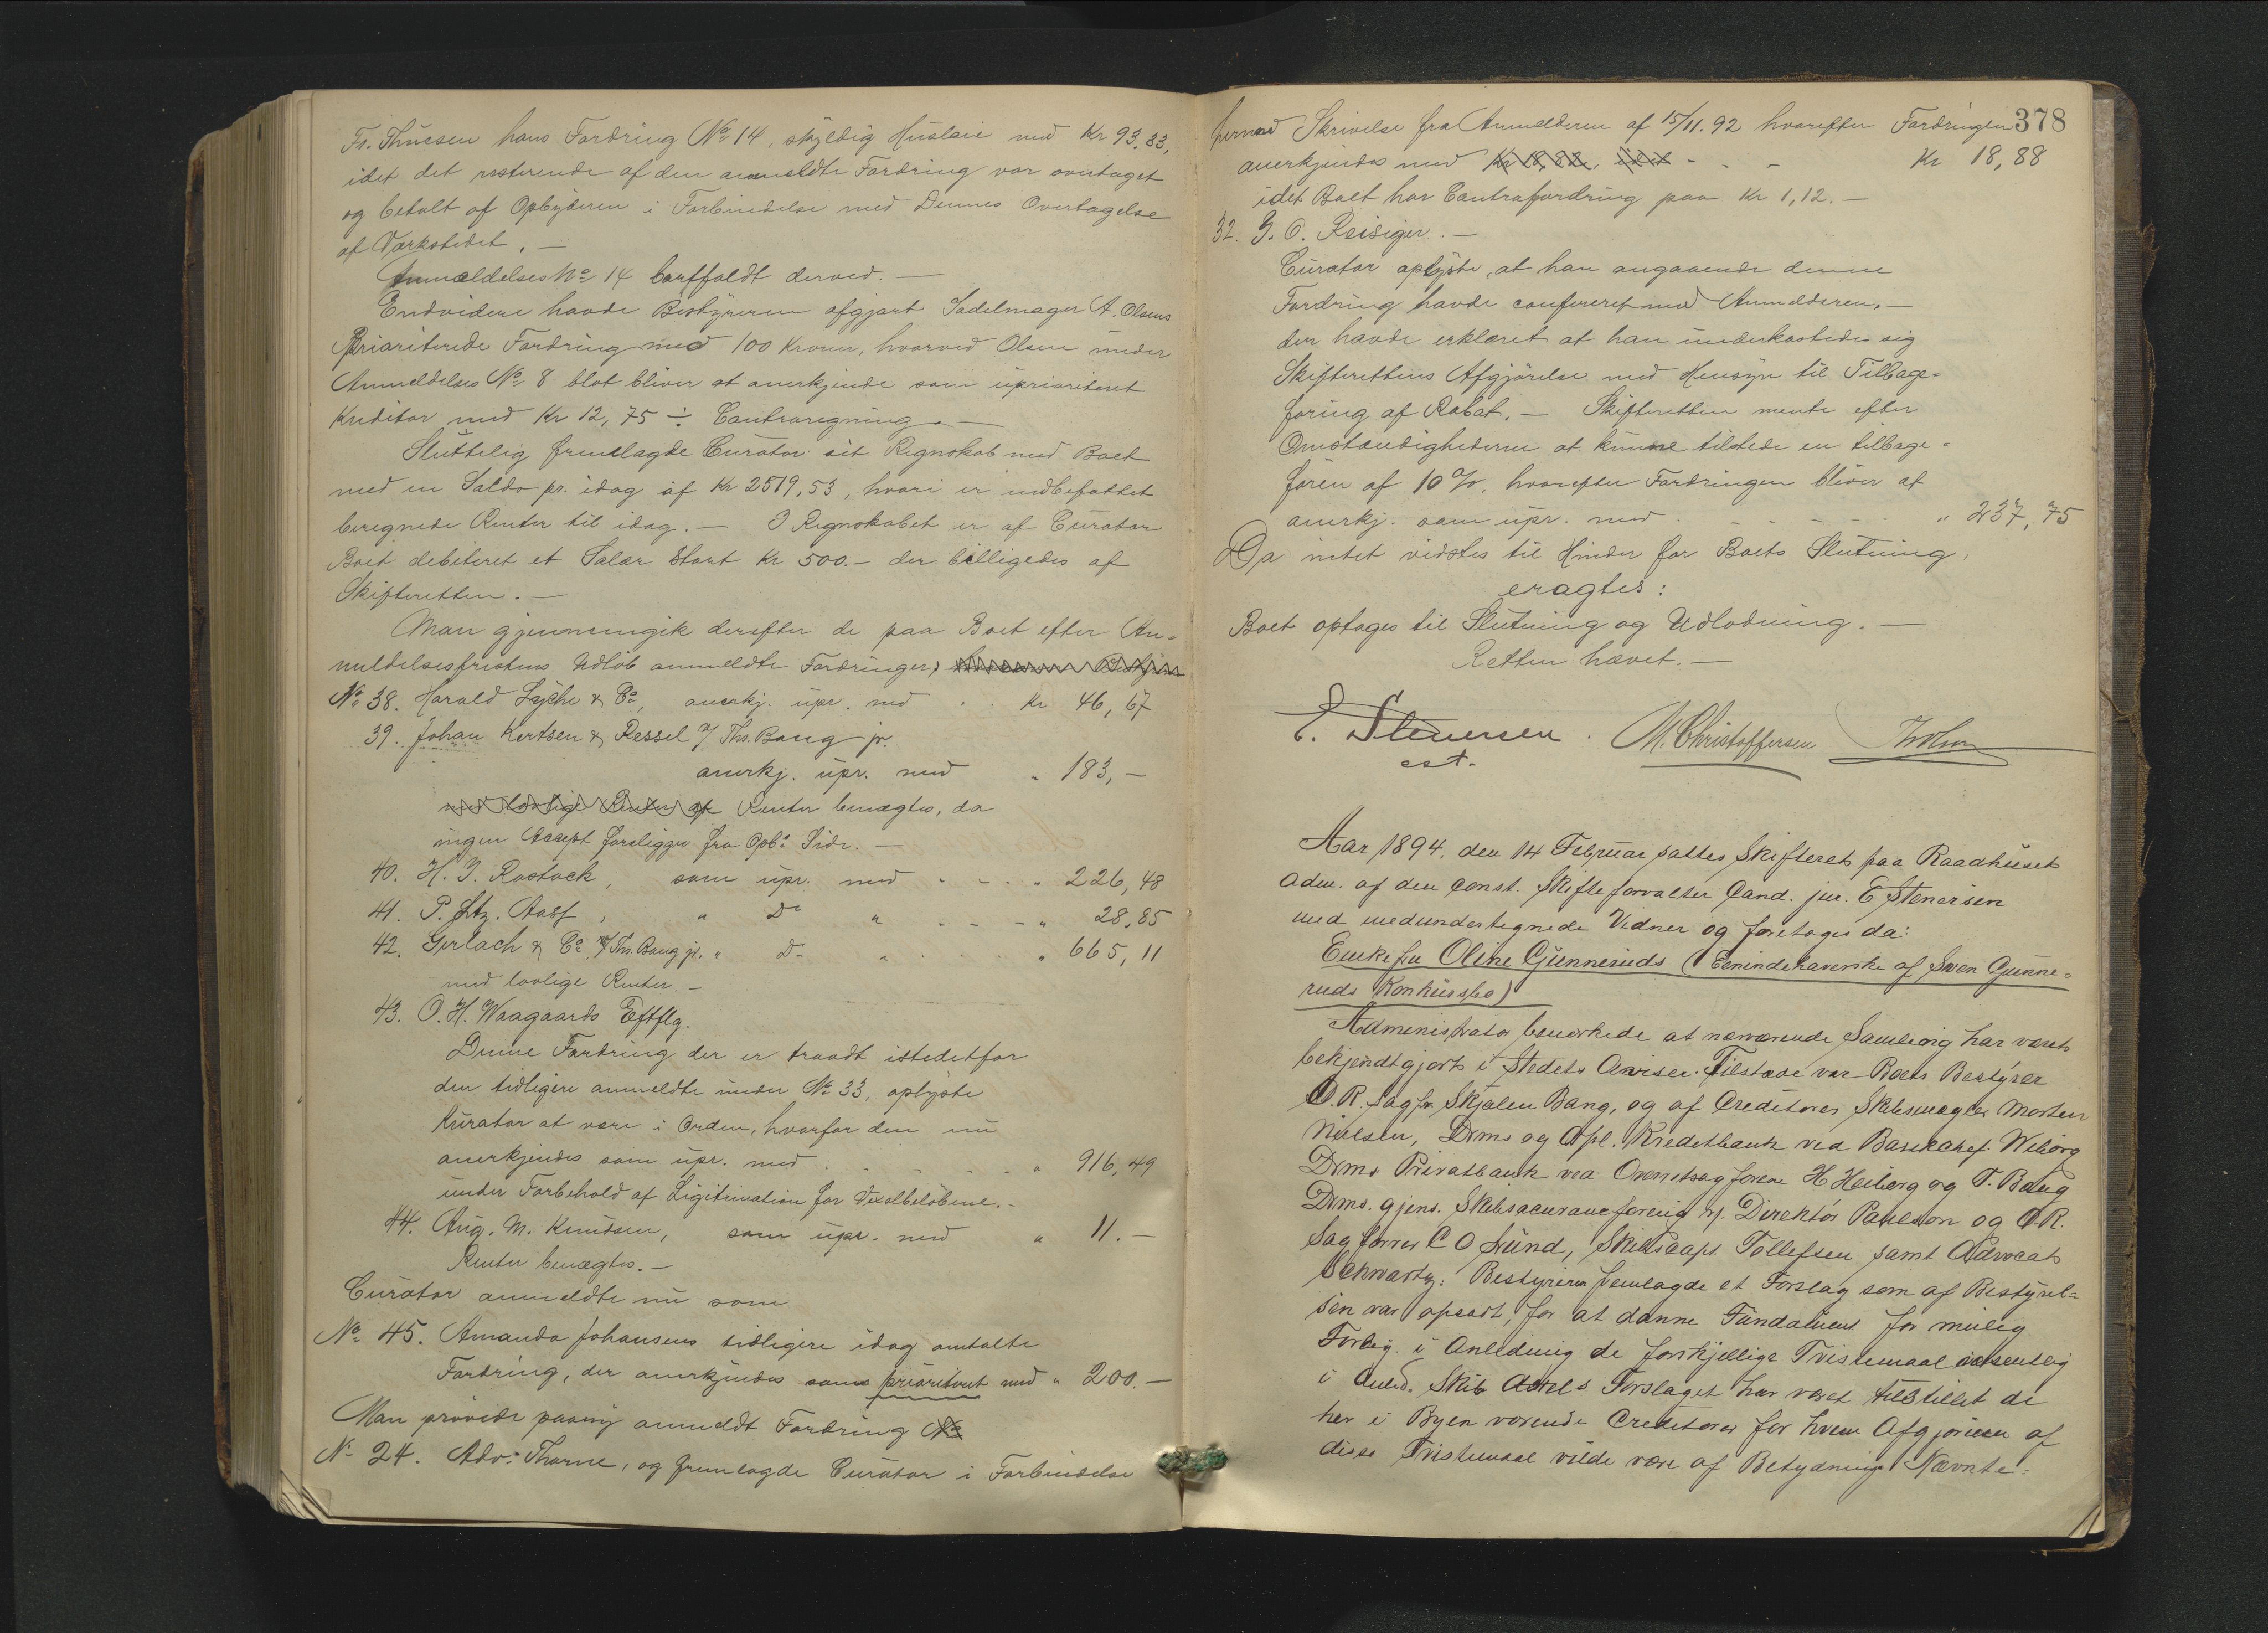 Fr. Thuesen hans Fordring No 14, skyldig Husleie med Kr 93.33,
idet det resterende af den anmeldte Fordring var overtaget
og betalt af Opbyderen i Forbindelse med Dennes Overtagelse
af Værkstedet. —
Anmeldelses No 14 bortfaldt derved. —
Endvidere havde Bestyreren afgjort Sadelmager A. Olsens
Prioriterede Fordring med 100 Kroner, hvorved Olsen under
Anmeldelses No 8 blot bliver at anerkjende som uprioriteret
Kreditor med Kr 12,75 ÷ Contraregning. —
Sluttelig fremlagde Curator sit Regnskab med Boet
med en Saldo pr. idag af Kr 2519,53, hvori er indbefattet
beregnede Renter til idag. — I Regnskabet er af Curator
Boet debiteret et Salær stort Kr 500.- der billigedes af
Skifteretten. —
Man gjennemgik derefter de paa Boet efter An-
meldelsesfristens Udløb anmeldte Fordringer,
No 38. Harald Lyche & Co, anerkj. upr. med . . Kr 46,67
39. Johan Kertsen & Ressel v/ Ths. Bang jr.
anerkj. upr. med " 183,—
med lovlige Renter af Renter benægtes, da
ingen Accept foreligger fra Opbs Side. —
40. H. J. Rostock, som upr. med " - - " 226,48
41. P. Ltz. Aass, " Do " . - - " 28,85
42. Gerlach & Co v/ Ths. Bang jr. " D- " . . . " 665,11
med lovlige Renter. —
43. O. H. Waagaards Eftflg.
Denne Fordring der er traadt istedetfor
den tidligere anmeldte under No 33, oplyste
Kurator at være i Orden, hvorfor den nu
anerkjendes som upr. med . . . . . " 916,49
under Forbehold af Ligitimation for Vexelbeløbene. -
44. Aug. M. Knudsen, som upr. med " 11.—
Renter benægtes. —
Curator anmeldte nu som
No 45. Amanda Johansens tidligere idag omtalte
Fordring, der anerkjendes som prioriteret med " 200.—
Man prøvede paany anmeldt Fordring No
No 24. Adv: Thorne, og fremlagde Curator i Forbindelse
378
hermed Skrivelse fra Anmelderen af 15/11.92 hvorefter Fordringen
anerkjendes med Kr 18,88, idet - - - Kr 18,88
idet Boet har Contrafordring paa Kr 1,12. —
32. G. O. Reisiger. —
Curator oplyste, at han angaaende denne
Fordring havde confereret med Anmelderen, —
der havde erklæret at han underkastede sig
Skifterettens Afgjørelse med Hensyn til Tilbage-
føring af Rabat. — Skifteretten mente efter
Omstændighederne at kunne tilstede en tilbage-
føren af 10 %, hvorefter Fordringen bliver at
anerkj. som upr. med . - - - - " 237,75
Da intet vidstes til Hinder for Boets Slutning,
eragtes:
Boet optages til Slutning og Udlodning. —
Retten hævet. —
E. Stenersen. M. Christoffersen
cst.
Aar 1894, den 14 Februar sattes Skifteret paa Raadhuset
adm. af den const. Skifteforvalter Cand. jur. E Stenersen
med medundertegnede Vidner og foretoges da:
Enkefru Oline Gunneruds (Eenindehaverske af Sven Gunne-
ruds Konkursbo)
Administrator bemerkede at nærværende Samling har været
bekjendtgjort i Stedets Aviser. Tilstede var Boets Bestyrer
O. R. sagfr. Skjølen Bang, og af Creditorer Skibsmægler Morten
Nielsen, Drms og Opl. Kreditbank ved Bankchef Wiborg
Drms Privatbank ved Overretsagførerne H Heiberg og T. Bang
Drms. gjens. Skibsassuranceforenig v/ Direktør Paulson og O R.
Sagfører C O Lund, Skibscapt. Tollefsen samt Advocat
Schwartz. Bestyreren fremlagde et Forslag som af Bestyrel-
sen var opsat, for at danne Fundament for mulig
Forlig i Anledning de forskjellige Tvistemaal væsentlig
i Anled. Skib Forslaget har været tilstillet de
her i Byen værende Creditorer for hvem Afgjørelsen af
disse Tvistemaal vilde være af Betydning. Nævnte-